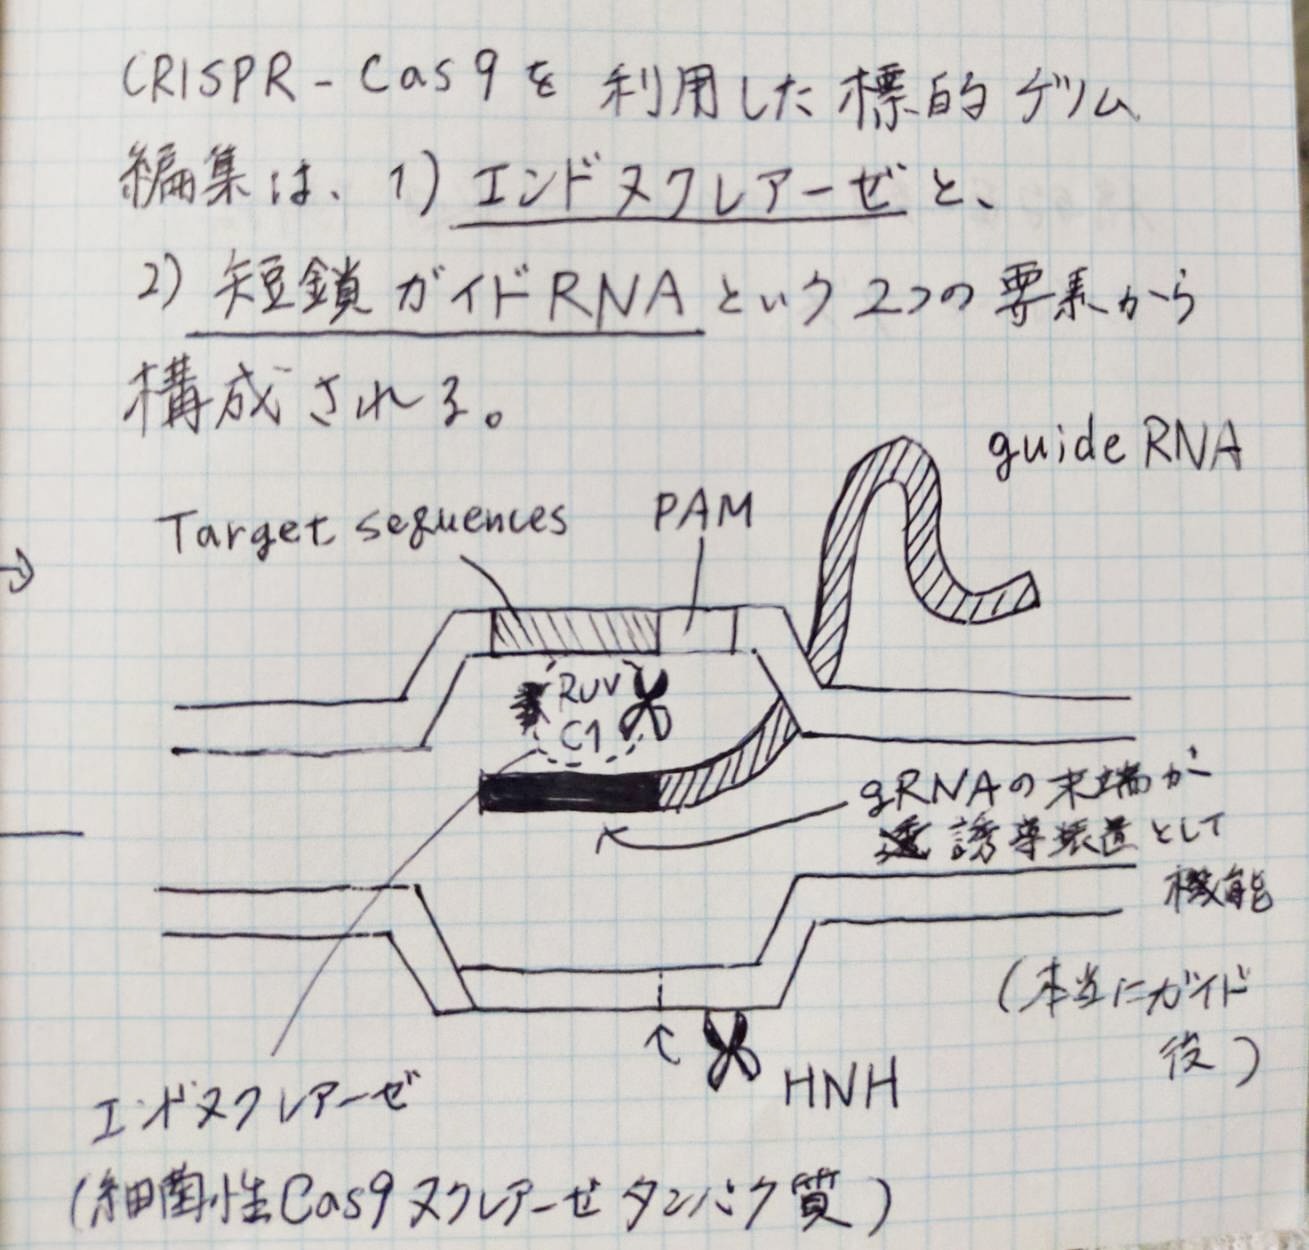 CRISPR-Cas9を利用した標的ゲノム
編集は、1)エンドヌクレアーゼと、
2)短鎖ガイドRNAという2つの要素から
構成される。
guide RNA
Target sequences
PAM
RuV
C1
gRNAの末端が
誘導装置として
機能
(本当にガイド
役)
HNH
エンドヌクレアーゼ
(細菌性Cas9ヌクレアーゼタンパク質)